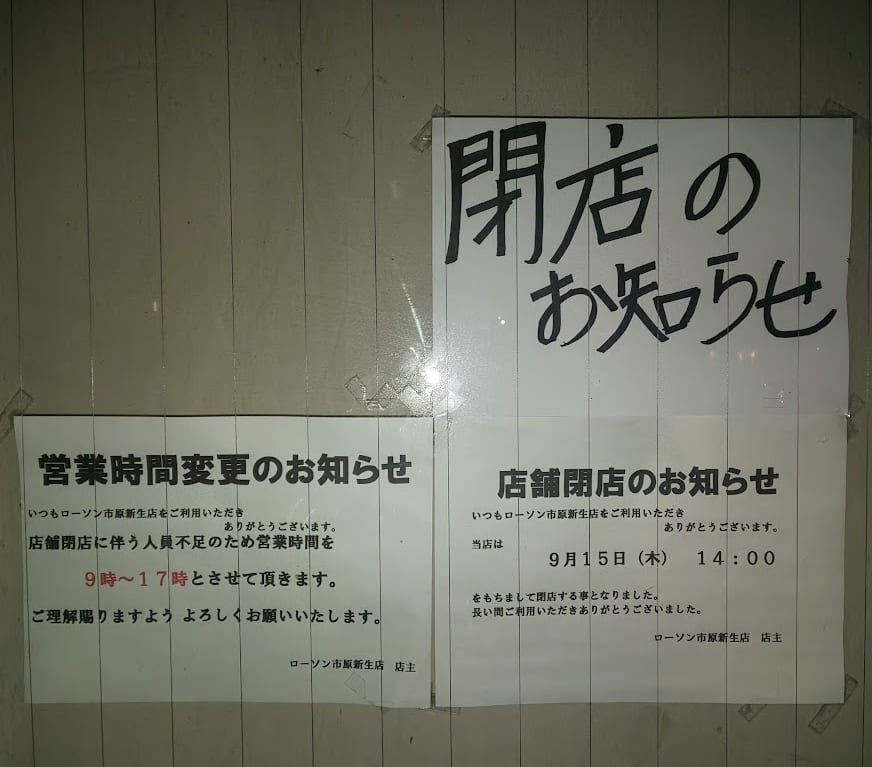 閉店の
お知らせ
営業時間変更のお知らせ
いつもローソン市原新生店をご利用いただき
ありがとうございます。
店舗閉店に伴う人員不足のため営業時間を
９時～１７時とさせて頂きます。
ご理解賜りますよう よろしくお願いいたします。
ローソン市原新生店　店主
店舗閉店のお知らせ
いつもローソン市原新生店をご利用いただき
ありがとうございます。
当店は
９月１５日（木）　１４：００
をもちまして閉店する事となりました。
長い間ご利用いただきありがとうございました。
ローソン市原新生店　店主